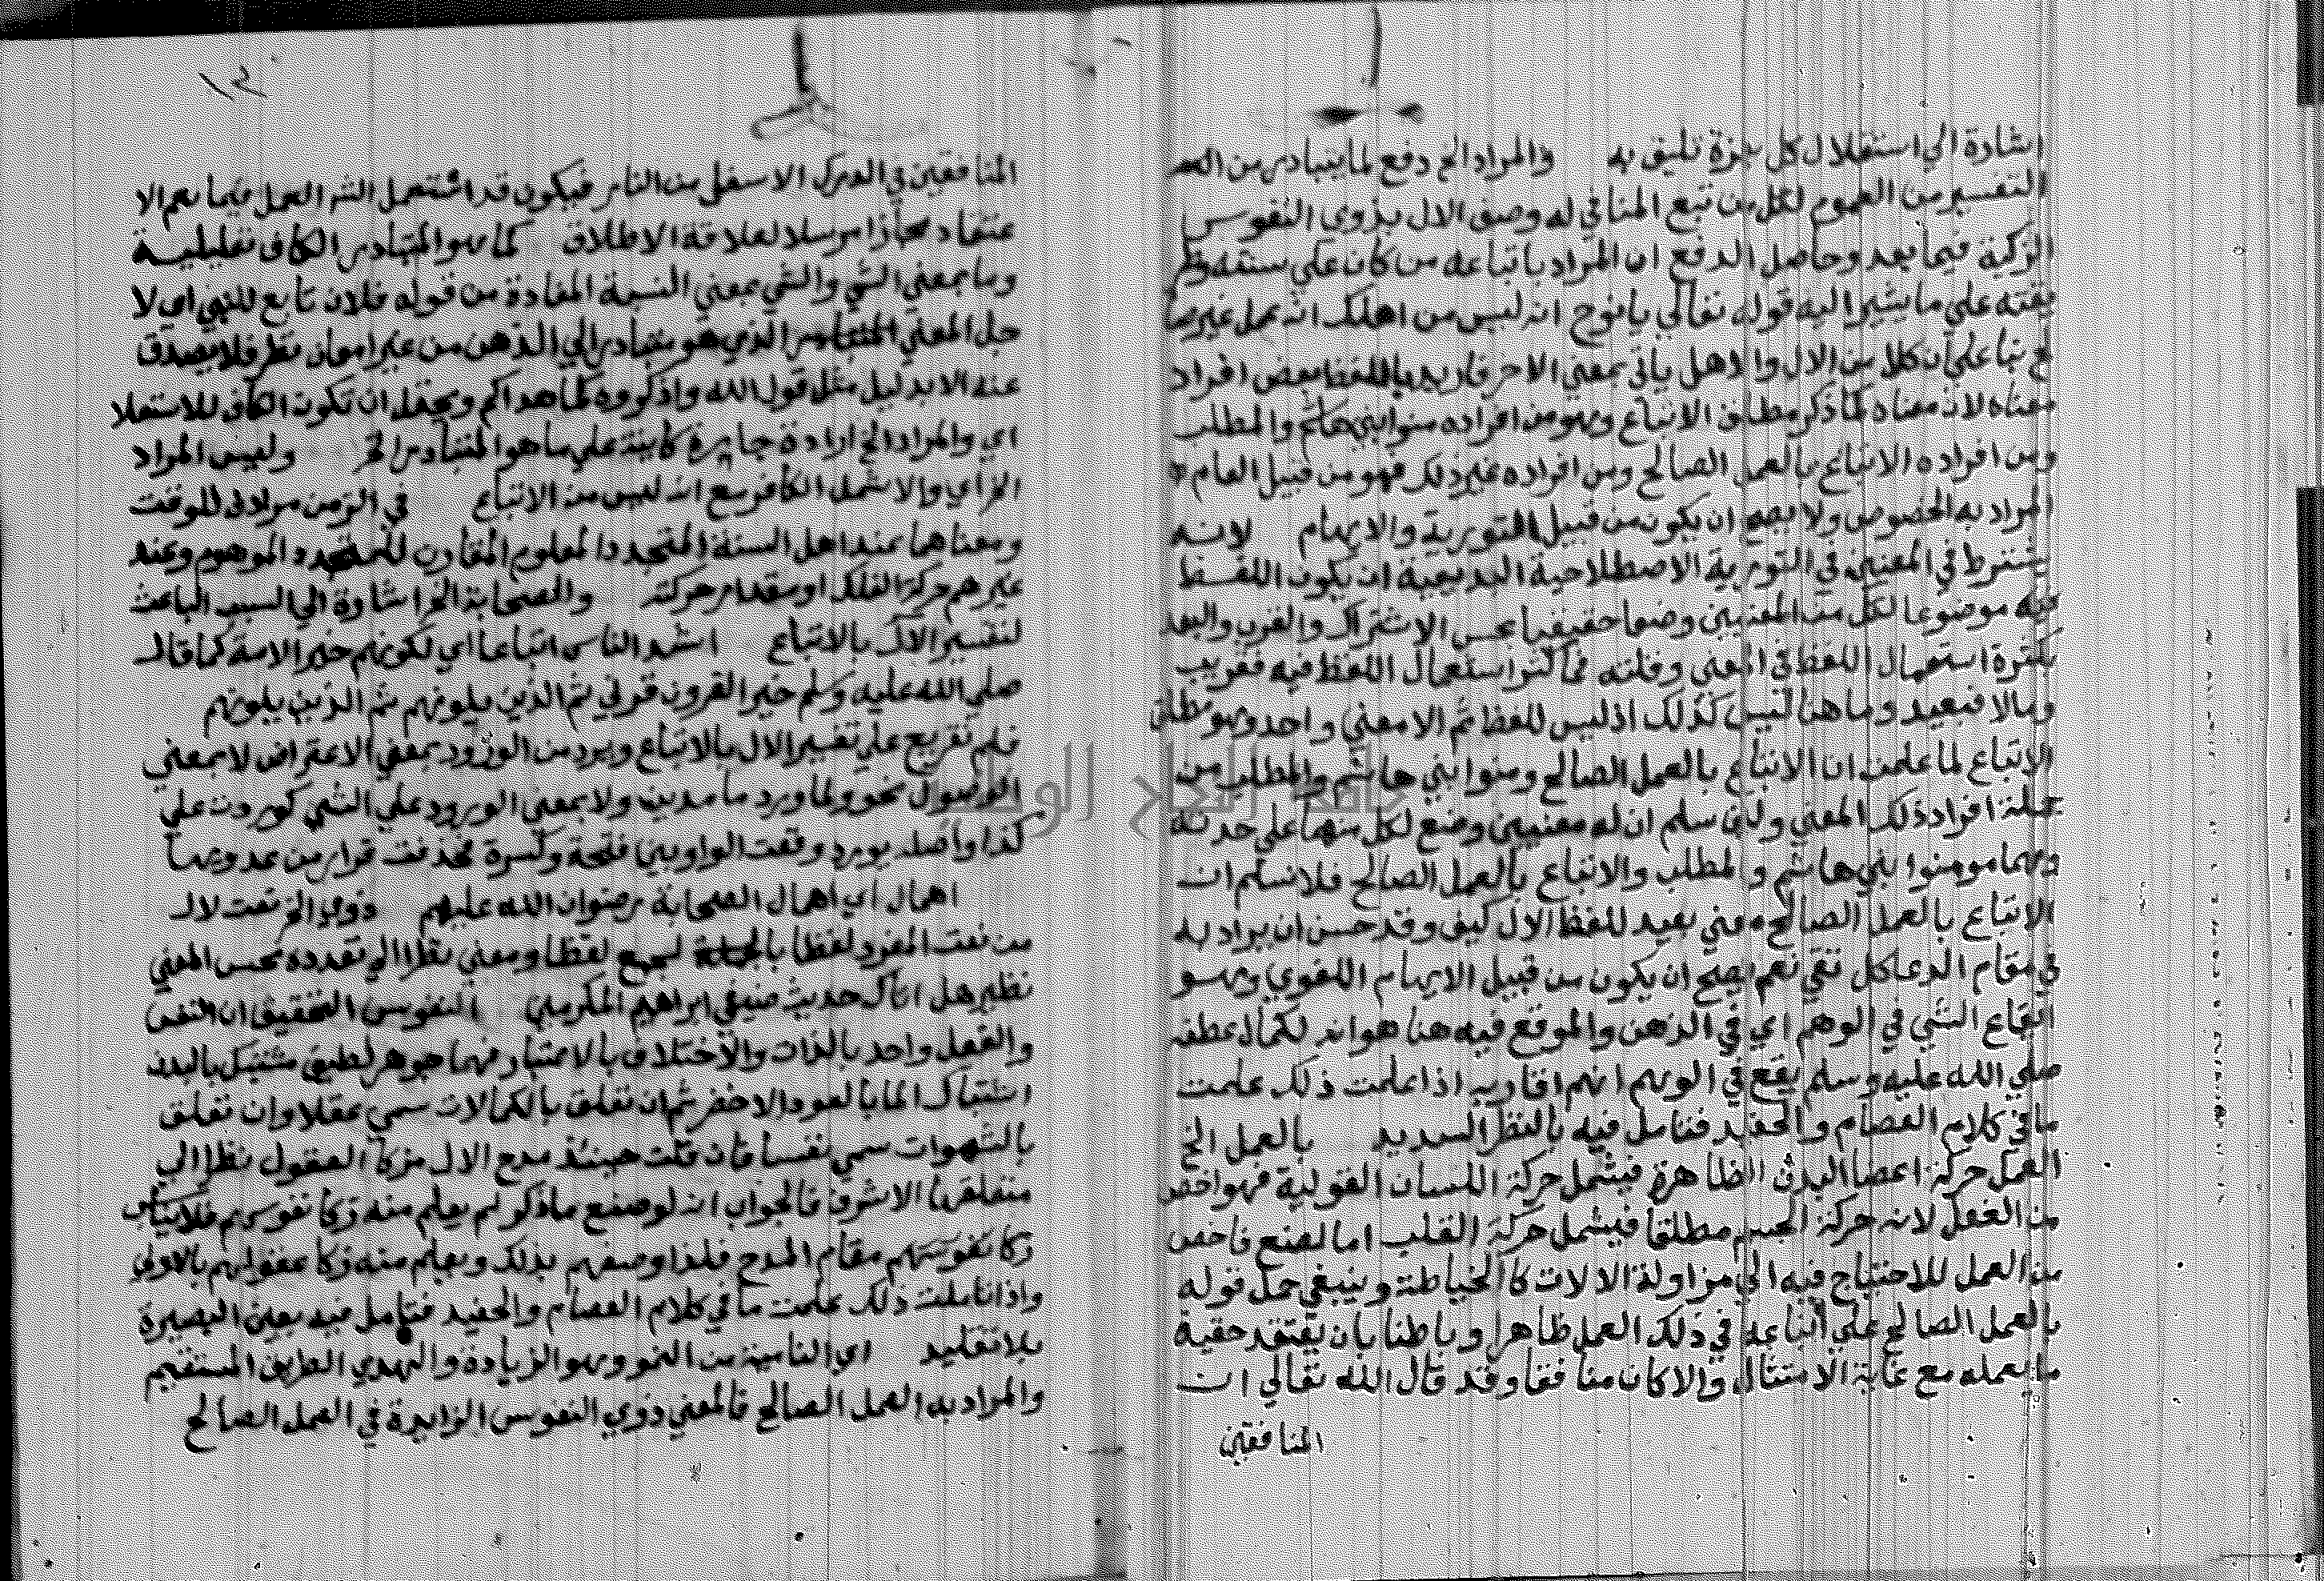 اشارة الي استقلال كل بمزة تليق به والمراد الخ دفع لما يتبادر من
التفسير من العموم لكل من تبع المنافي له وصف الال بذوي النفوس
الزكية فيما بعد وحاصل الدفع ان المراد باتباعه من كان علي سنته
يقته علي ما يشير اليه قوله تعالي يا نوح انه ليس من اهلك انه عمل غير صا
لح بنا علي ان كلا من الال والاهل ياتي بمعني الاخر فاريد باللفظ بعض افراد
معناه لان معناه كما ذكر مطلق الاتباع وهو من افراده مؤمنوا بني هاشم والمطلب
ومن افراده الاتباع بالعمل الصالح ومن افراده غير ذلك فهو من قبيل العام
المراد به الخصوص ولا يصح ان يكون من قبيل التورية والايهام لانه
يشترط في المعنيين في التورية الاصطلاحية البديعية ان يكون اللفظ
فيه موضوعا لكل من المعنيين وضعا حقيقيا بحسب الاشتراك والقرب والبعد
بكثرة استعمال اللفظ في المعني وقلته فما كثر استعمال اللفظ فيه فقريب
ومالا فبعيد وما هنا ليس كذلك اذ ليس للفظ ثم الا معني واحد وهو مطلق
الاتباع لما علمت ان الاتباع بالعمل الصالح ومنوا بني هاشم والمطلب من
جملة افراد ذلك المعني ولئن سلم ان له معنيين وضع لكل منهما علي حدته
وهما مومنوا بني هاشم والمطلب والاتباع بالعمل الصالح فلا نسلم ان
الاتباع بالعمل الصالح معني بعيد للفظ الال كيف وقد حسن ان يراد به
في مقام الدعا كل تقي نعم يصح ان يكون من قبيل الايهام اللغوي وهو
ايقاع الشي في الوهم اي في الذهن والموقع فيه هنا هو انه لكمال عطفه
صلي الله عليه وسلم يقع في الوهم انهم اقاربه اذا علمت ذلك علمت
ما في كلام العصام والحفيد فتامل فيه بالنظر السديد بالعمل الخ
العمل حركة اعضا البدن الظاهرة فيشمل حركة اللسان القولية فهو اخص
من الفعل لانه حركة الجسم مطلقا فيشمل حركة القلب اما الصنع فاخص
من العمل للاحتياج فيه الي مزاولة الالات كالخياطة وينبغي حمل قوله
بالعمل الصالح علي اتباعه في ذلك العمل ظاهرا وباطنا بان يعتقد حقية
ما يعمله مع غاية الامتثال والا كان منافقا وقد قال الله تعالي ان
المنافقين
المنافقين في الدرك الاسفل من النار فيكون قد استعمل الشر العمل فيما يعم الا
عتقاد مجازا مرسلا لعلاقة الاطلاق كما هو المتبادر الكاف تعليلية
وما بمعني الشي والشي بمعني النسبة المفادة من قوله فلان تابع للنبي اي لا
جل المعني المتبادر الذي هو متبادر الي الذهن من غير امعان نظر فلا يصدق
عنه الا بدليل مثل قول الله واذكروه كما هداكم ويحتمل ان تكون الكاف للاستعلا
اي والمراد الخ ارادة جايزة كاينة علي ما هو المتبادر الخ وليس المراد
الخ اي والا شمل الكافر مع انه ليس من الاتباع في الزمن مرادف للوقت
ومعناهما عند اهل السنة المتجدد المعلوم المقارن للمتجدد الموهوم وعند
غيرهم حركة الفلك او مقدار حركته والصحابة الخ اشارة الي السبب الباعث
لتفسير الال بالاتباع اشد الناس اتباعا اي لكونهم خير الامة كما قال
صلي الله عليه وسلم خير القرون قرني ثم الذين يلونهم ثم الذين يلونهم
فلم تفريع علي تفسير الال بالاتباع ويرد من الورود بمعني الاعتراض لا بمعني
الوصول نحو ولما ورد ما مدين ولا بمعني الورود علي الشي كوردت علي
كذا واصله يورد وقعت الواو بين فتحة وكسرة فحذفت فرارا من عدوتها
اهمال اي اهمال الصحابة رضوان الله عليهم ذوي الخ نعت لال
من نعت المفرد لفظا بالجملة لجمع لفظا ومعني نظرا الي تعدده بحسب المعني
نظير هل اتاك حديث ضيف ابراهيم المكرمين النفوس التحقيق ان النفس
والعقل واحد بالذات والاختلاف بالاعتبار فهما جوهر لطيف مشتبك بالبدن
اشتباك الما بالعود الاخضر ثم ان تعلق بالكمالات سمي عقلا وان تعلق
بالشهوات سمي نفسا فان قلت حينئذ مدح الال بزكا العقول نظرا الي
متعلقها الاشرف فالجواب انه لو صنع ما ذكر لم يعلم منه زكا نفوسهم فلا يناسب
زكا نفوسهم مقام المدح فلذا وصفهم بذلك ويعلم منه زكا عقولهم بالاولي
واذا تاملت ذلك علمت ما في كلام العصام والحفيد فتامل فيه بعين البصيرة
بلا تقليد اي النامية من النمو وهو الزيادة والهدي الطريق المستقيم
والمراد به العمل الصالح فالمعني ذوي النفوس الزايدة في العمل الصالح